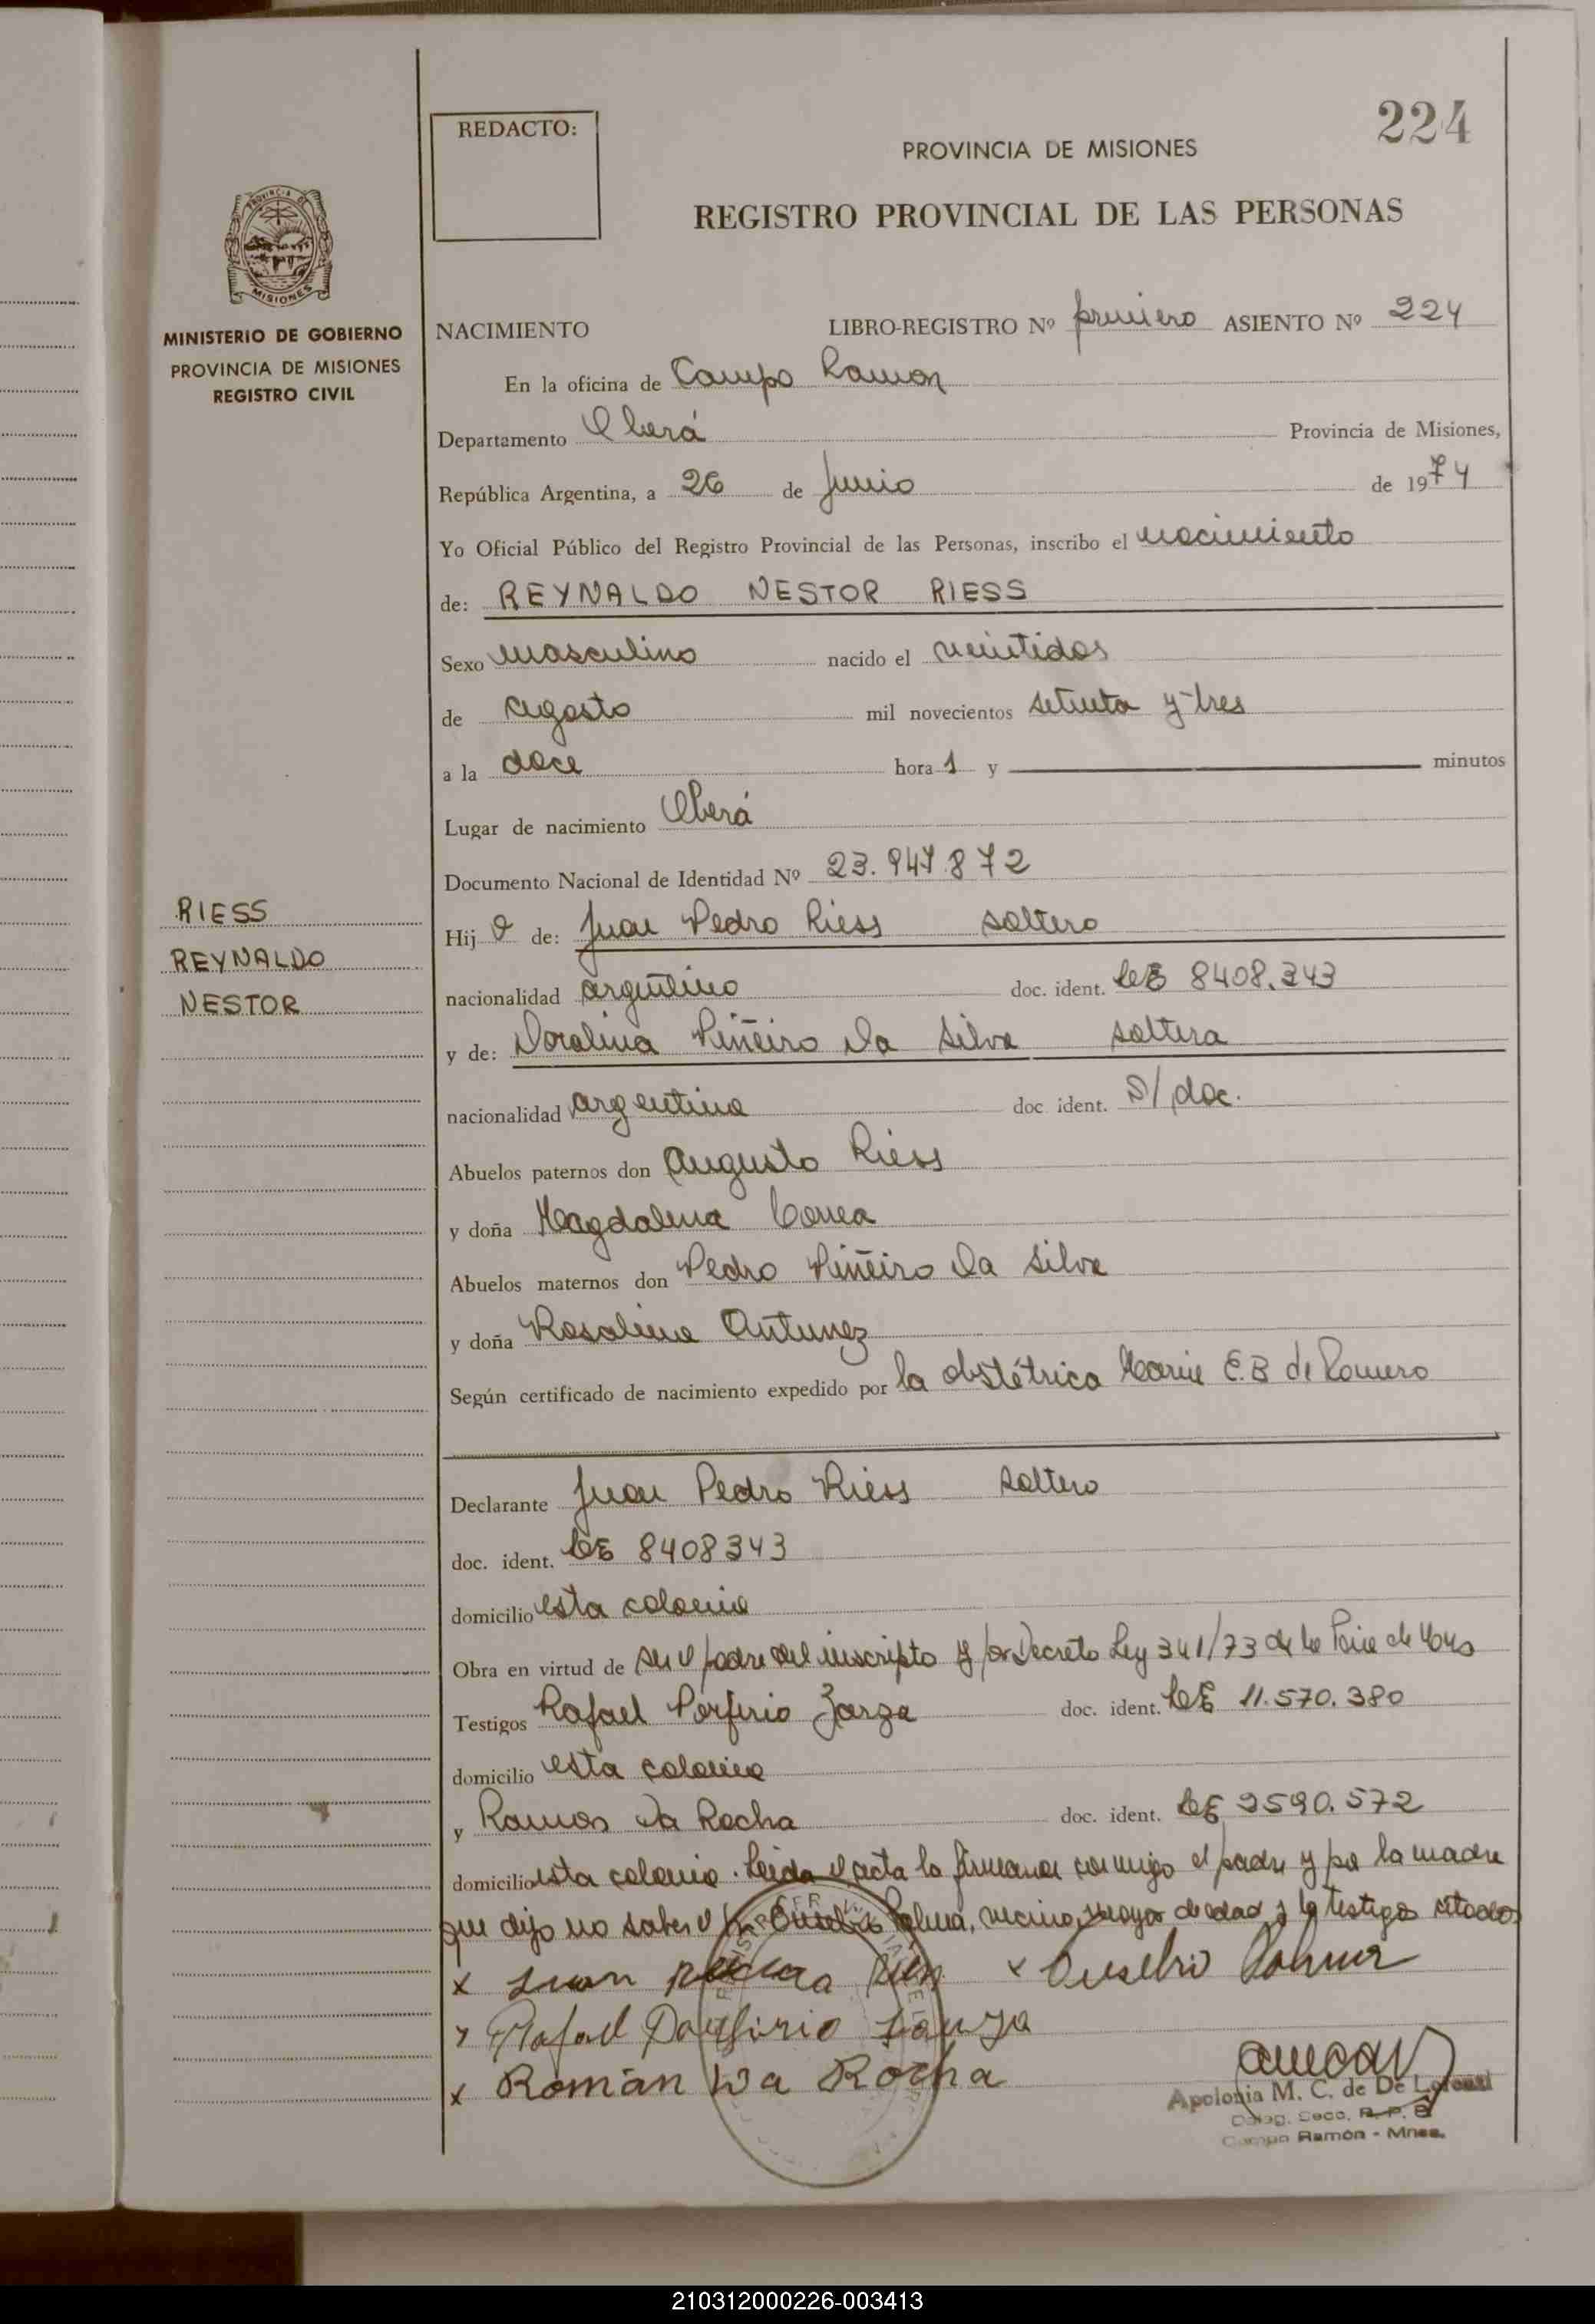 224
REDACTO:
PROVINCIA DE MISIONES
REGISTRO PROVINCIAL DE LAS PERSONAS
PROVINCIA DE
MISIONES
MINISTERIO DE GOBIERNO
PROVINCIA DE MISIONES
REGISTRO CIVIL
NACIMIENTO LIBRO-REGISTRO Nº primero ASIENTO Nº 224
En la oficina de Campo Ramon
Departamento Oberá Provincia de Misiones,
República Argentina, a 26 de Junio de 1974
Yo Oficial Público del Registro Provincial de las Personas, inscribo el nacimiento
de: REYNALDO NESTOR RIESS
Sexo masculino nacido el veintidos
de agosto mil novecientos setenta y tres
a la doce hora 1 y minutos
Lugar de nacimiento Oberá
Documento Nacional de Identidad Nº 23.947.872
RIESS
REYNALDO
NESTOR
Hij o de: Juan Pedro Riess soltero
nacionalidad argentino doc. ident. LE 8408.343
y de: Doralina Piñeiro Da Silva soltera
nacionalidad argentina doc ident. S/doc.
Abuelos paternos don Augusto Riess
y doña Magdalena Correa
Abuelos maternos don Pedro Piñeiro Da Silva
y doña Rosalina Antunez
Según certificado de nacimiento expedido por la obstétrica Maria E.B de Romero
Declarante Juan Pedro Riess soltero
doc. ident. LE 8408343
domicilio esta colonia
Obra en virtud de ser el padre del inscripto y por Decreto Ley 341/73 de la
Testigos Rafael Porfirio Zarza doc. ident. LE 11.570.380
domicilio esta colonia
y Ramon Da Rocha doc. ident. LE 9590.572
domicilio esta colonia. Leida el acta la firman conmigo el padre y por la madre
que dijo no saber Eusebio Palma, vecino, mayor de edad y los testigos citados
x Juan x Eusebio Palma
x Rafael Porfirio Zarza
x Román Da Rocha
Apolonia M. C. de De Lorenzi
Deleg. Secc. R. P. P.
Campo Ramón - Mnes.
210312000226-003413